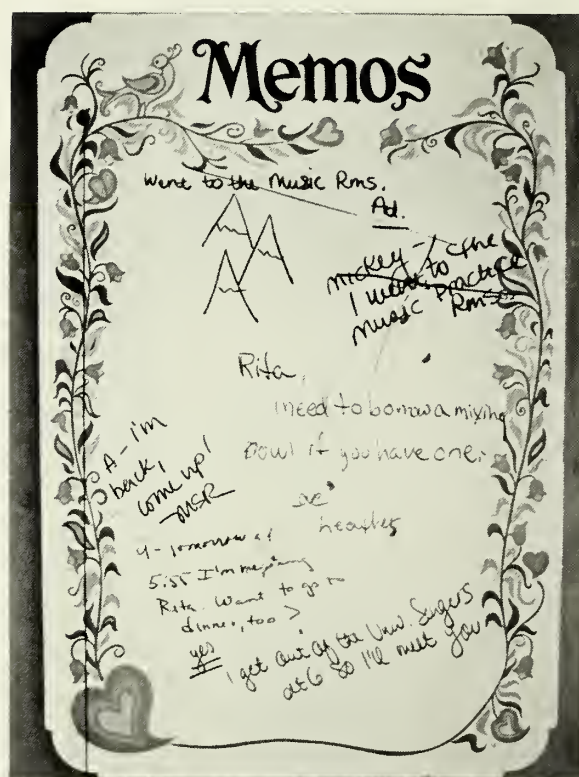 Memos
Went to the Music Rms.
Ad.
A
A A
Mickey -
I went to the
Music Practice
Rms.
Rita,
I need to borrow a mixing
bowl if you have one.
heather
A - I'm
back,
come up!
-MSR
Tomorrow at
5:55 I'm meeting
Rita. Want to go to
dinner, too?
yes
I get out of the Univ. Singers
at 6 so I'll meet you